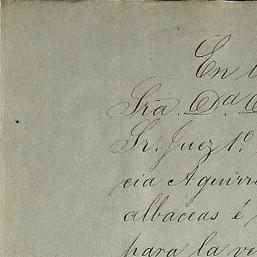 En
Sra. Da.
Sr. Juez 1o.
cia Aguirr
albaceas é
para la ve